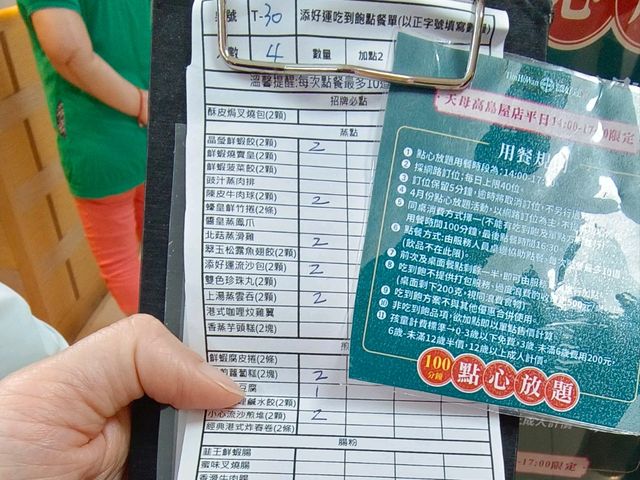 號 T-30 添好運吃到飽點餐單(以正字號填寫數量)
數 4 數量 加點2
溫馨提醒:每次點餐最多10道
招牌必點
酥皮焗叉燒包(2顆)
蒸點
晶瑩鮮蝦餃(2顆) 2
鮮蝦燒賣皇(2顆)
鮮蝦菠菜餃(2顆)
豉汁蒸肉排
陳皮牛肉球(2顆) 2
蠔皇鮮竹捲(2條)
醬皇蒸鳳爪
北菇蒸滑雞 2
翠玉松露魚翅餃(2顆)
添好運流沙包(2顆) 2
雙色珍珠丸(2顆)
上湯蒸雲吞(2顆) 2
港式咖哩炆雞翼
香蒸芋頭糕(2塊)
鮮蝦腐皮捲(2條)
蘿蔔糕(2塊) 2
豆腐 1
鹹水餃(2顆)
小心流沙煎堆(2顆) 2
經典港式炸春卷(2條)
腸粉
韭王鮮蝦腸
蜜味叉燒腸
香滑牛肉腸
Tim Ho Wan 添好運
天母高島屋店平日14:00-17:00限定
用餐規
1 點心放題用餐時段為:14:00-17
2 採網路訂位,每日上限40位。
3 訂位保留5分鐘,逾時將取消訂位,不另行
4 4月份點心放題活動,以網路訂位為主,不
5 同桌消費方式擇一(不能有吃到飽及單點
用餐時間100分鐘,最後點餐時間16:30
6 點餐方式:由服務人員桌邊協助點餐,每
多10道
(飲品不在此限)。
7 前次及桌面餐點剩餘一半,即可由服
進行加點。
8 吃到飽不提供打包服務,過度消費酌收
500元/
(桌面剩下200克,視同浪費食物)
9 吃到飽方案不與其他優惠合併使用。
10 非吃到飽品項,欲加點即以單點售價計算
11 孩童計費標準→0-3歲以下免費,3歲-未滿6歲費用200元,
6歲-未滿12歲半價,12歲以上成人計價。
100分鐘 點心放題
-17:00限定